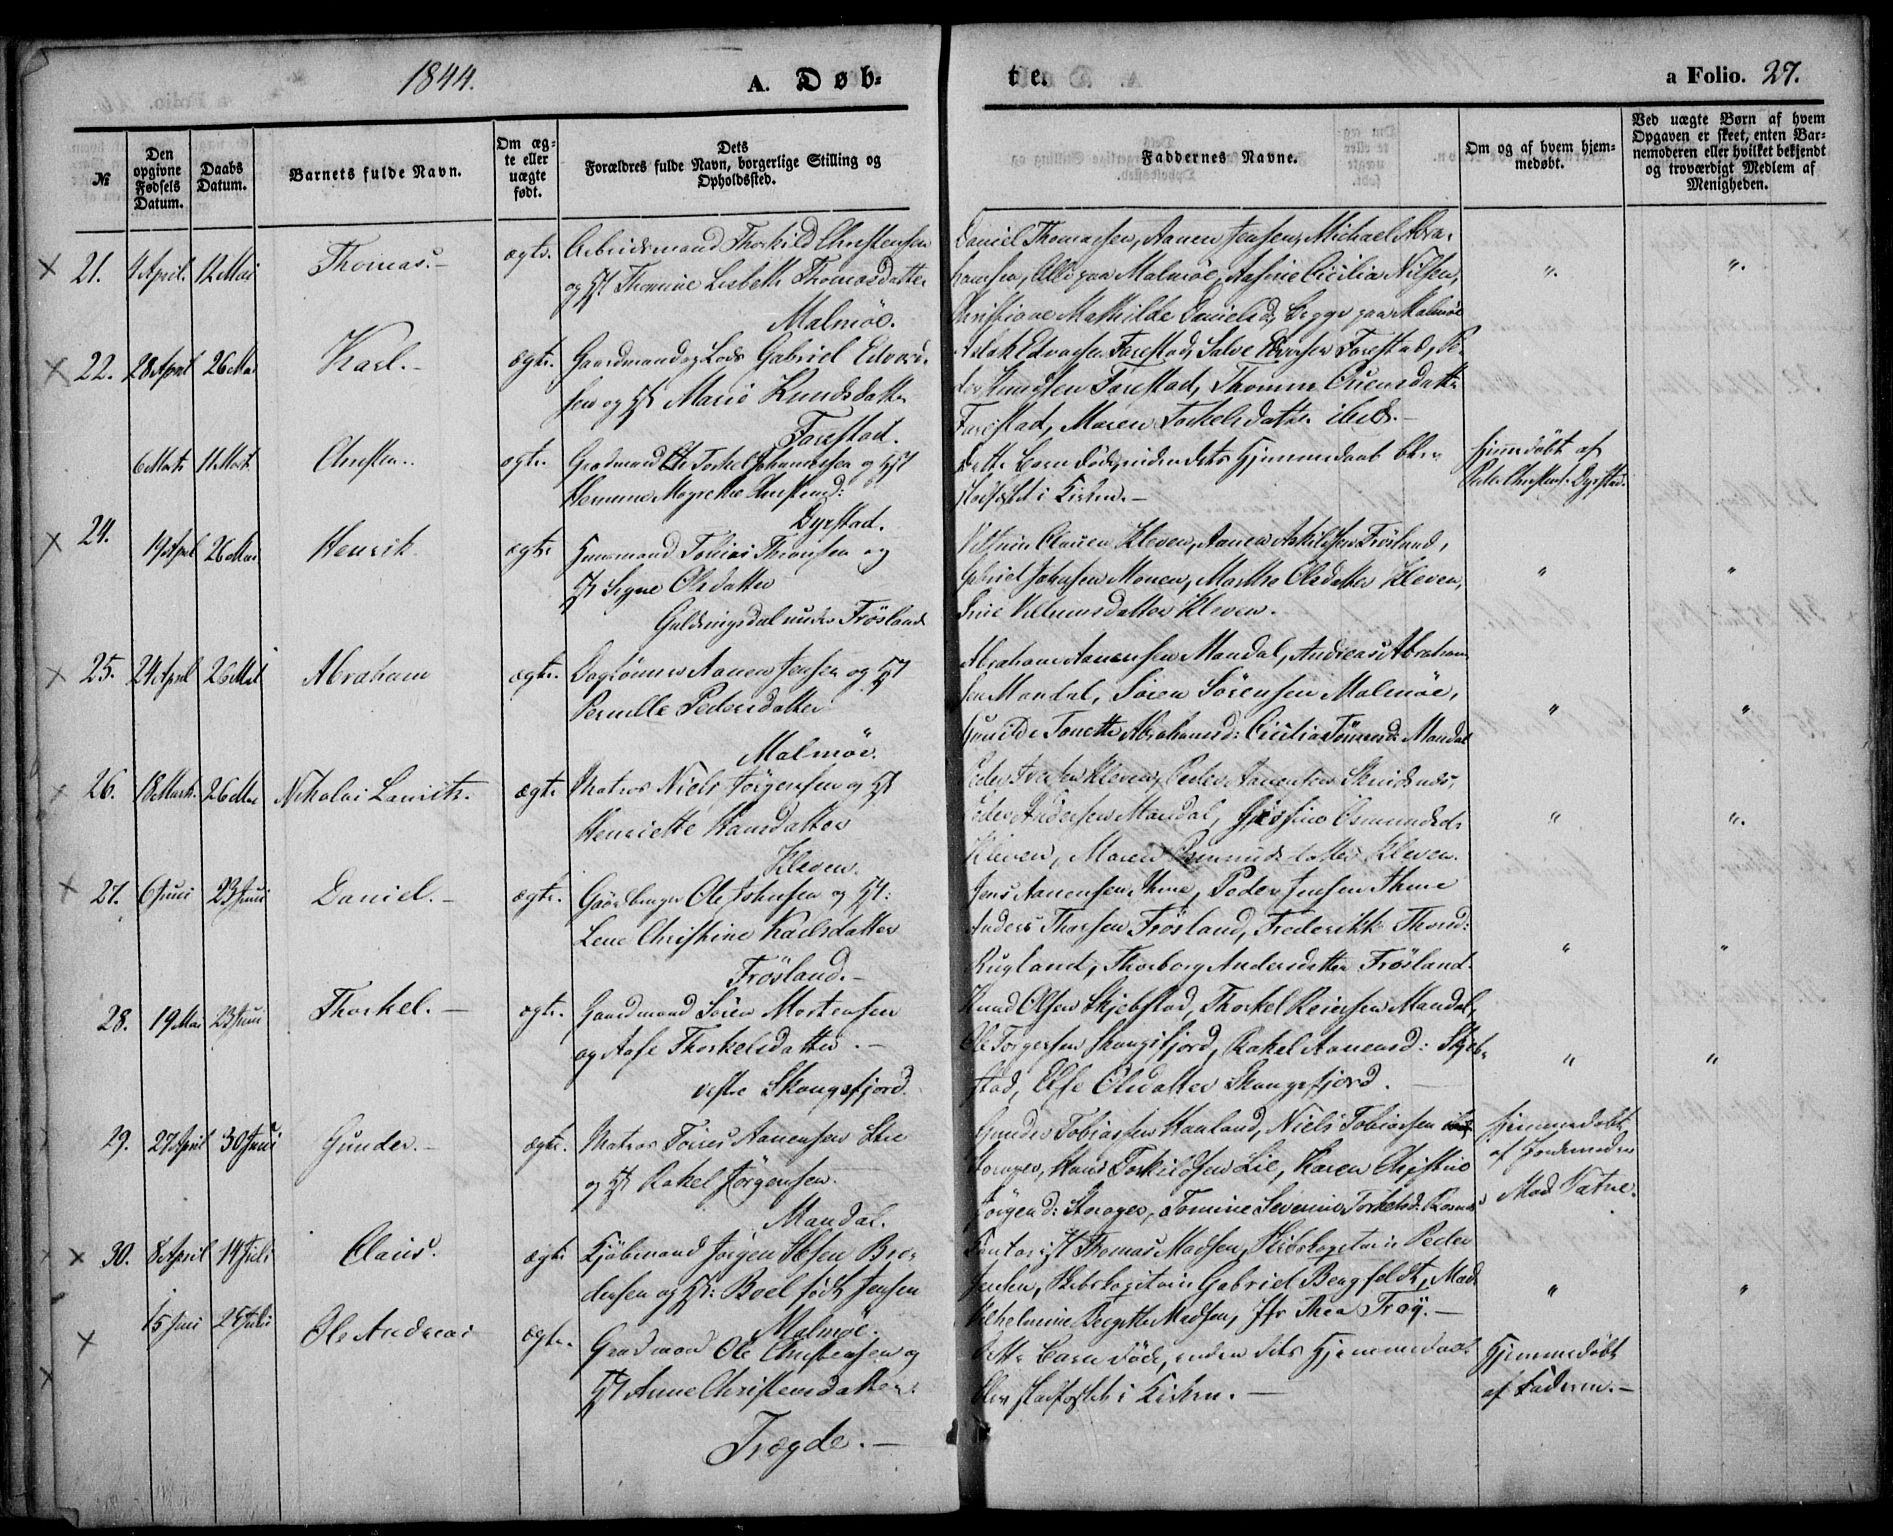 1844.
A. Døb-
te.
a Folio. 27.
№
Den opgivne Fødsels Datum.
Daabs Datum.
Barnets fulde Navn.
Om ægte eller uægte født.
Dets Forældres fulde Navn, borgerlige Stilling og Opholdssted.
Faddernes Navne.
Om og af hvem hjemmedøbt.
Ved uægte Børn af hvem Opgaven er skeet, enten Barnemoderen eller hvilket bekjendt og troværdigt Medlem af Menigheden.
21. 4 April. 12 Mai Thomas.- ægte. Arbeidsmand Thorkild Christensen
og H. Thomine Lisbeth Thomasdatter
Malmöe.
Daniel Thomassen, Aanen Jensen, Michael Abra-
hamsen, Alle paa Malmöe, Cicilia Nilsen,
Christiane Mathilde Danielsd, begge paa Malmöe
22. 28 April 26 Mai Karl.- ægte. Gaardmand og Lods Gabriel Edvard-
sen og H Marie Knudsdatter
Farestad.
Aslak Edvarsen Farestad, Salve Farestad, Pe-
der Knudsen Farestad, Thomine Farestad, Maren Torkelsdatter ibid.-
6 Marts 11 Marts Christen. ægte. Gaardmand Torkel Johannessen og H
Dyrstad.
Dette Barn döde, inden dets Hjemmedaab blev
stadfæstet i Kirken.-
hjemdöbt af
Peder Christens. Dyrstad.
24. 19 April 26 Mai Henrik ægte. Huusmand Tobias Thronsen og
H Signe Olsdatter
under Frösland
Clausen Kleven, Aanen Askildsen Frösland,
Gabriel Johnsen Monen, Martha Olsdatter Kleven,
Kleven.
25. 24 April 26 Mai Abraham ægte. Aanen Jensen og H
Pernille Pedersdatter
Malmöe.
Abraham Aanensen Mandal, Andreas Abraham-
sen Mandal, Sören Sörensen Malmöe,
Gunilde Tonette Abrahamsd: Cicilia Mandal
26. 18 Marts. 26 Mai Nikolai Lauritz. ægte Matros Niels Jörgensen og H
Henriette Hansdatter
Kleven.
Peder Kleven, Peder Aanensen
Peder Andersen Mandal,
Kleven, Maren Kleven.
27. 6 Juni 23 Juni Daniel.- ægte. Ole Johnsen og H:
Lene Christine Karlsdatter
Frösland.-
Jens Aanensen Ihme, Peder Jensen Ihme
Anders Frösland, Frederikke
Rugland, Thorborg Andersdatter Frösland.
28. 19 Mai 23 Juni Thorkel.- ægte. Gaardmand Sören Mortensen
og Aase Thorkelsdatter.-
vestre Skaugsfjord.
Knud Olsen Skjebstad, Thorkel Mandal,
Ole Torgersen Skaugsfjord, Rakel Aanensd: Skjeb-
stad, Else Olsdatter Skaugsfjord.
29. 27 April 30 Juni Gunder.- ægte. Matros Torres Aanensen Lie
og H Rakel Jörgensen.
Mandal.
Gunder Tobiassen Haaland, Niels Tobiassen
Hans Torkildsen Lie, Karen Christine
Jörgensd: Tomine Severine Torkelsd:
hjemmedöbt
af Jordemoderen
Mad Tatne.
30. 8 April 14 Juli Claus. ægte Kjöbmand Jörgen Ibsen Bro-
dersen og H: Boel född Jensen
Malmöe.
Kontorist Thomas Madsen, Skibskapitain Peder
Jensen, Skibskapitain Gabriel Bergfeldt, Mad.
Vilhelmine Birgitte Madsen, Jfr Thea Froy.-
15 Juni Juli Ole Andreas ægte. Gaardmand Ole Christensen og
H Anne Christensdatter.
Tregde.-
Dette Barn döde, inden dets Hjemmedaab
blev stadfæstet i Kirken.-
Hjemmedöbt
af Faderen.-